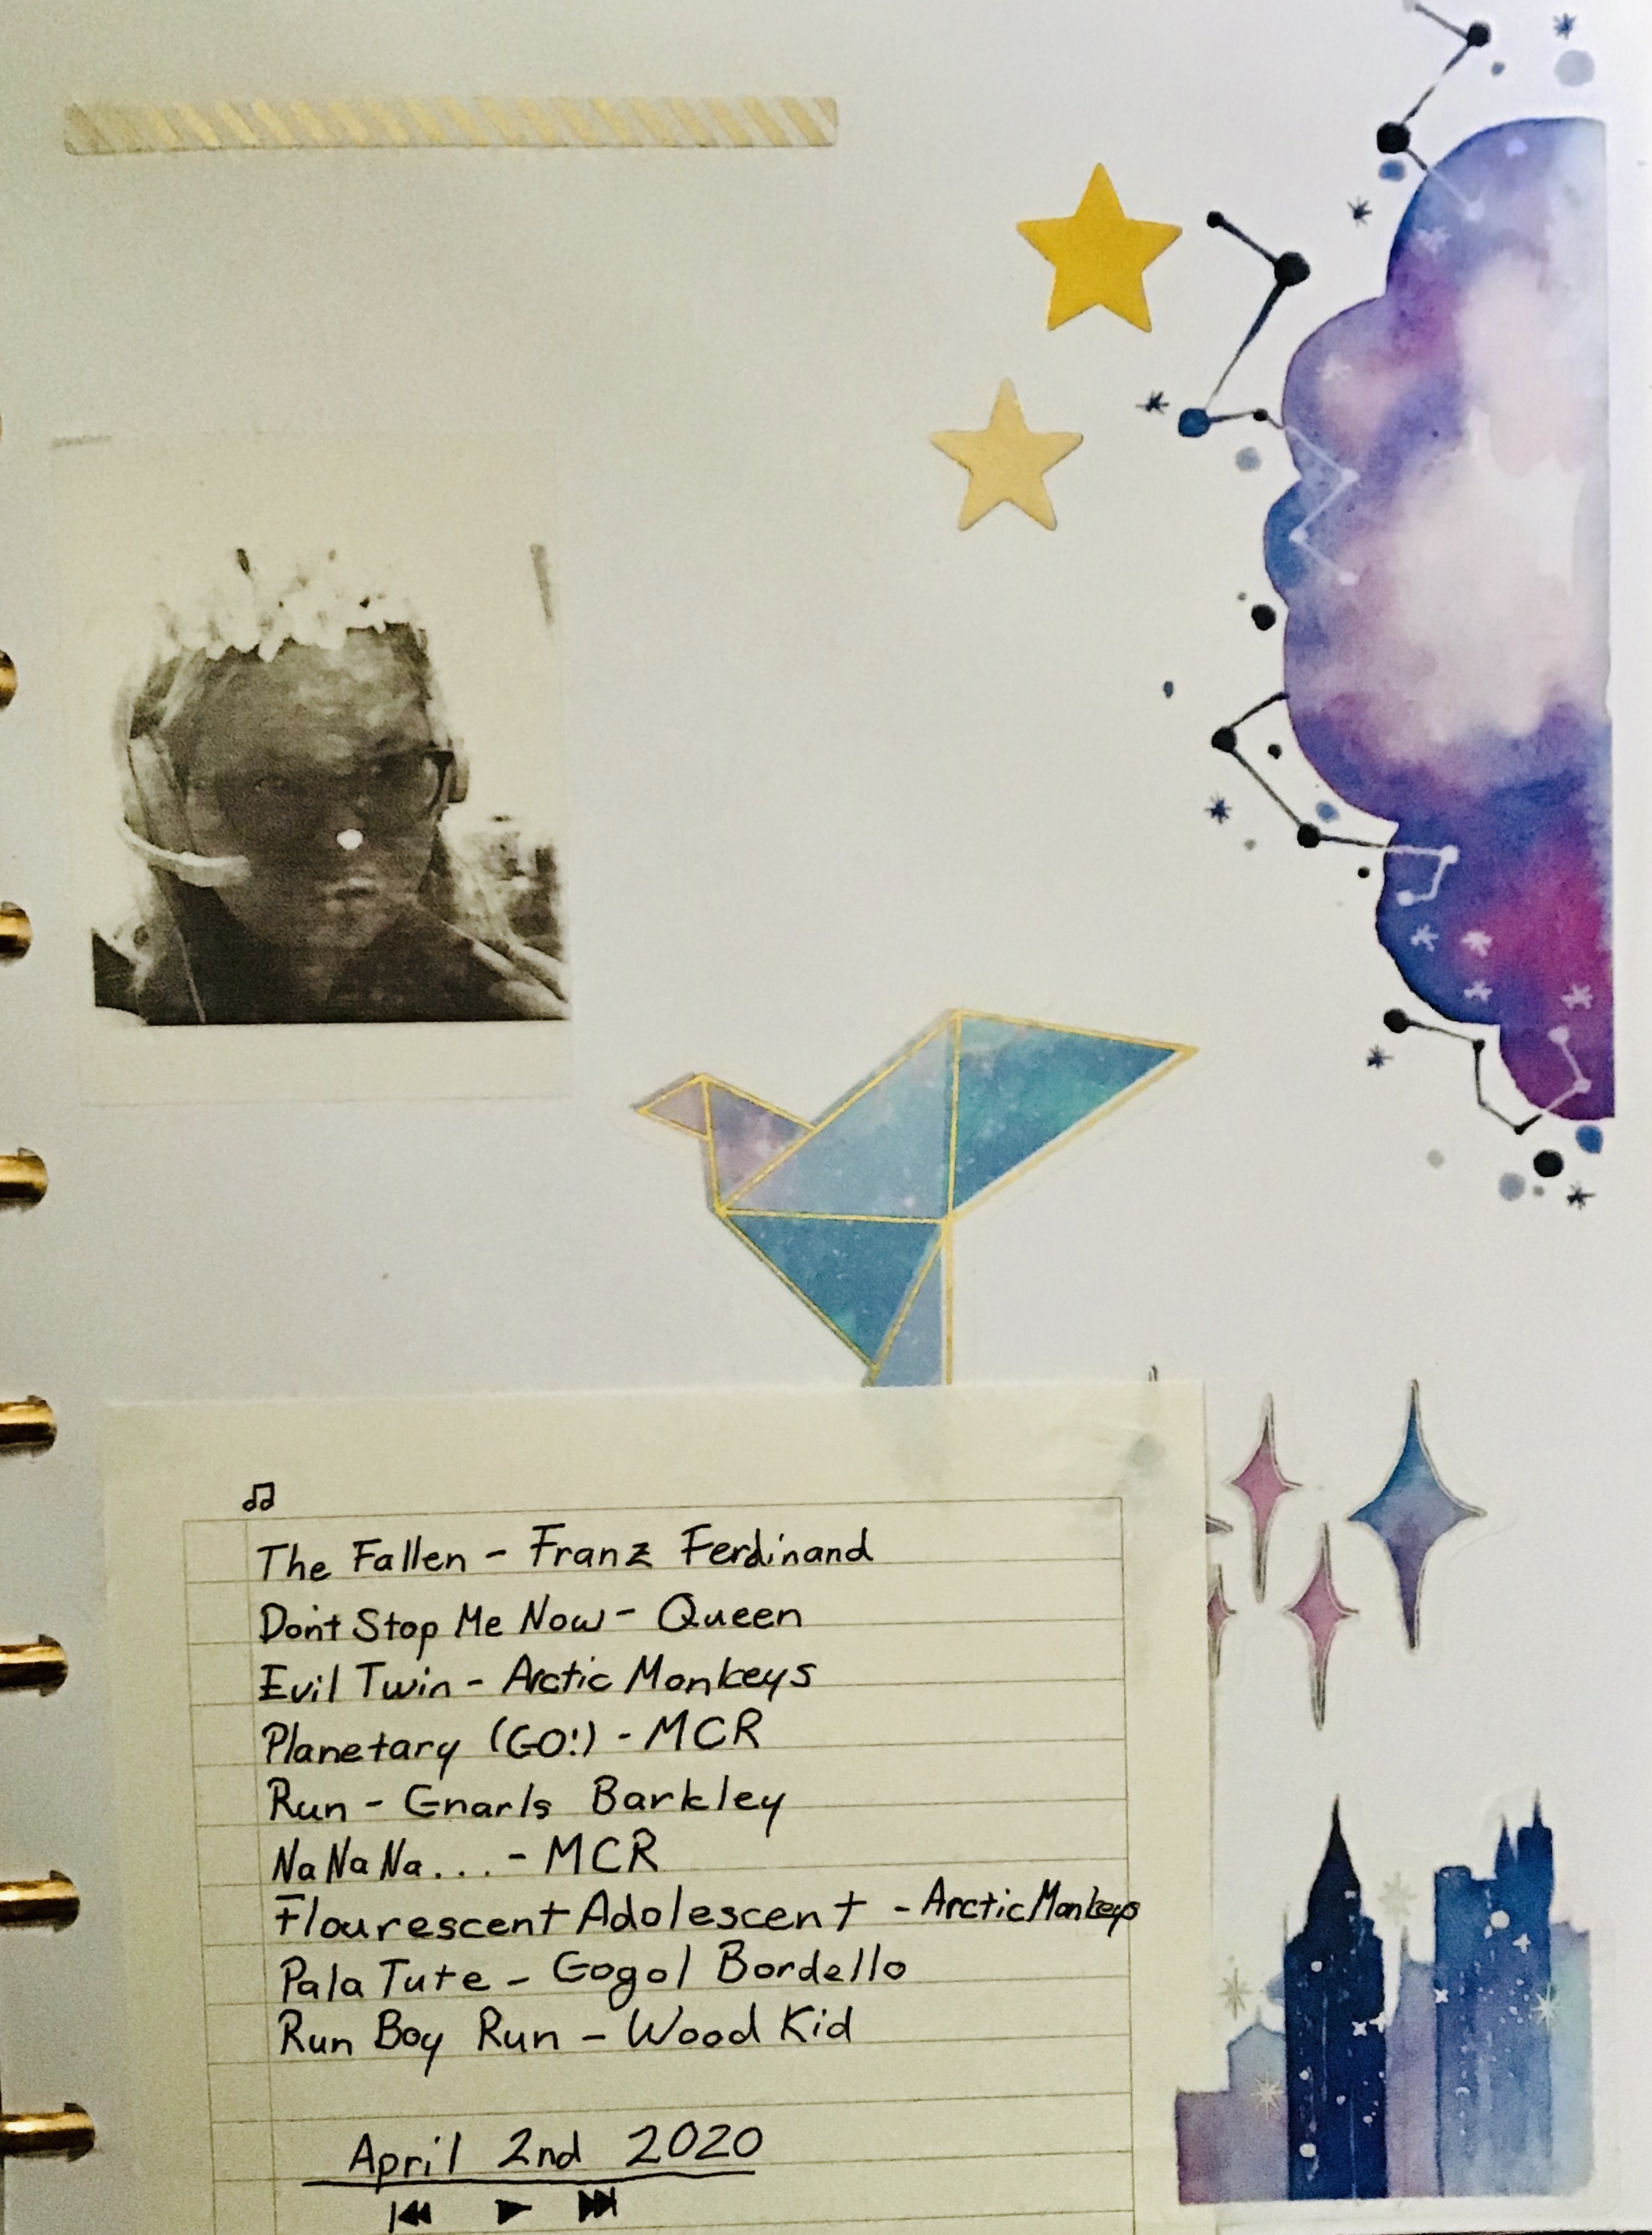 The Fallen - Franz Ferdinand
Don't Stop Me Now - Queen
Evil Twin - Arctic Monkeys
Planetary (GO!) - MCR
Run - Gnarls Barkley
Na Na Na... - MCR
Flourescent Adolescent - Arctic Monkeys
Pala Tute - Gogol Bordello
Run Boy Run - Wood Kid
April 2nd 2020